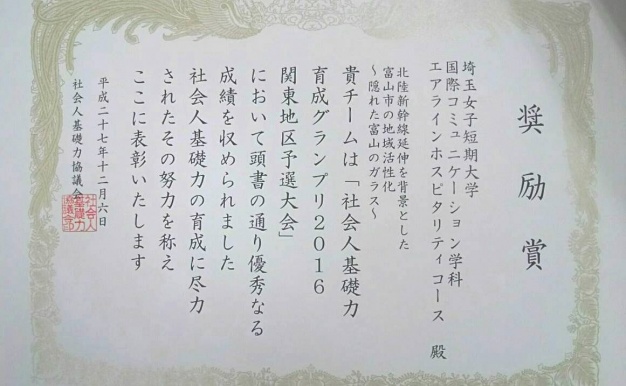 奨励賞
埼玉女子短期大学
国際コミュニケーション学科
エアラインホスピタリティコース 殿
北陸新幹線延伸を背景とした
富山市の地域活性化
～隠れた富山のガラス～
貴チームは「社会人基礎力
育成グランプリ2016
関東地区予選大会」
において頭書の通り優秀なる
成績を収められました
社会人基礎力の育成に尽力
されたその努力を称え
ここに表彰いたします
平成二十七年十二月六日
社会人基礎力協議会
社会人
基礎力
協議会印